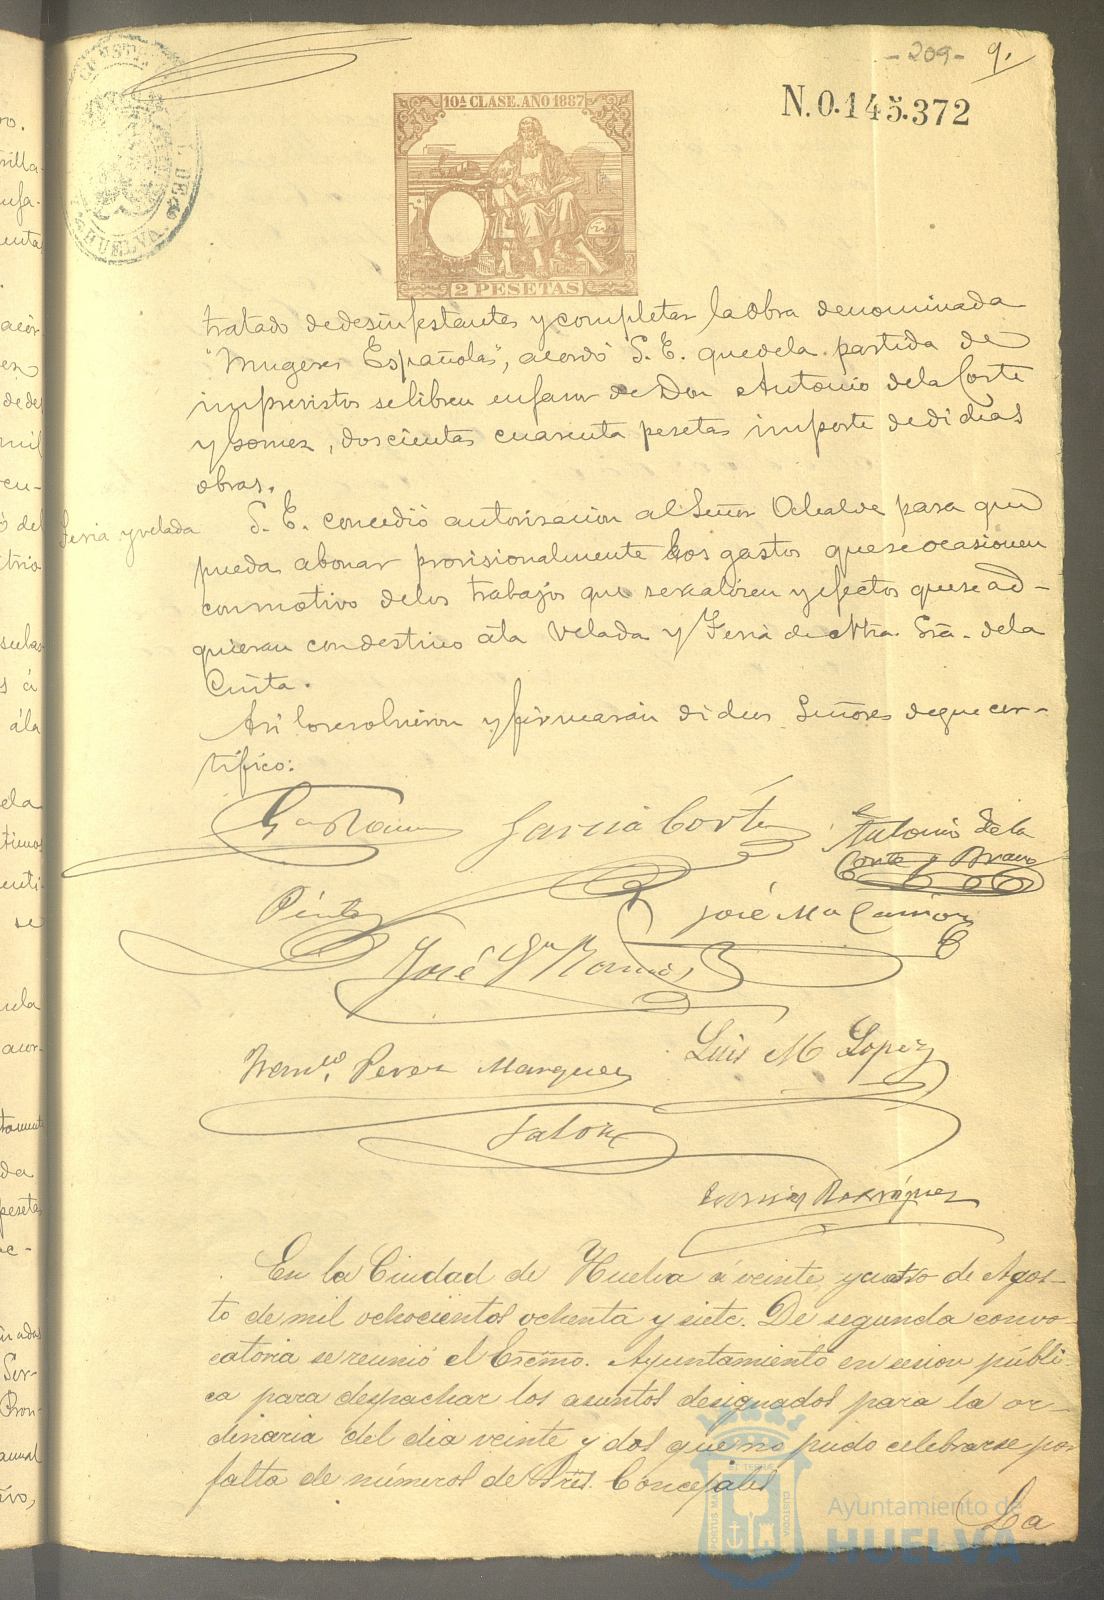 - 209 - 9.
N. 0.145.372
10ª CLASE. AÑO 1887
2 PESETAS
HUELVA
tratado de desinfestantes y completar la obra denominada
"Mugeres Españolas", acordó S. E. que de la partida de
imprevistos se libren en favor de Don Antonio de la Corte
y Gomez, doscientas cuarenta pesetas importe de dichas
obras.
Feria y velada
S. E. concedió autorizacion al Señor Ochalve para que
pueda abonar provisionalmente los gastos que se ocasionen
con motivo de los trabajos que se realicen y efectos que se ad-
quieran con destino á la Velada y Feria de Ntra. Srā. de la
Cinta.
Asi lo resolvieron y firmarán dichos Señores de que cer-
tifico:
Garcia Cortés Antonio de la
Corte y Bravo
José Mª
José Gª Ramos
Luis M Lopez
Perez Marquez
En la Ciudad de Huelva á veinte y cuatro de Agos-
to de mil ochocientos ochenta y siete. De segunda convo-
catoria se reunió el Excmo. Ayuntamiento en sesion públi-
ca para despachar los asuntos designados para la or-
dinaria del dia veinte y dos que no pudo celebrarse por
falta de números de Sres. Concejales
La
Ayuntamiento de
HUELVA